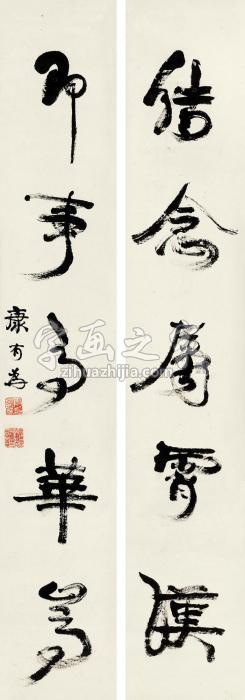 結念屬霄漢
即事高華嵩
康有為
字画之家
zihuazhijia.com